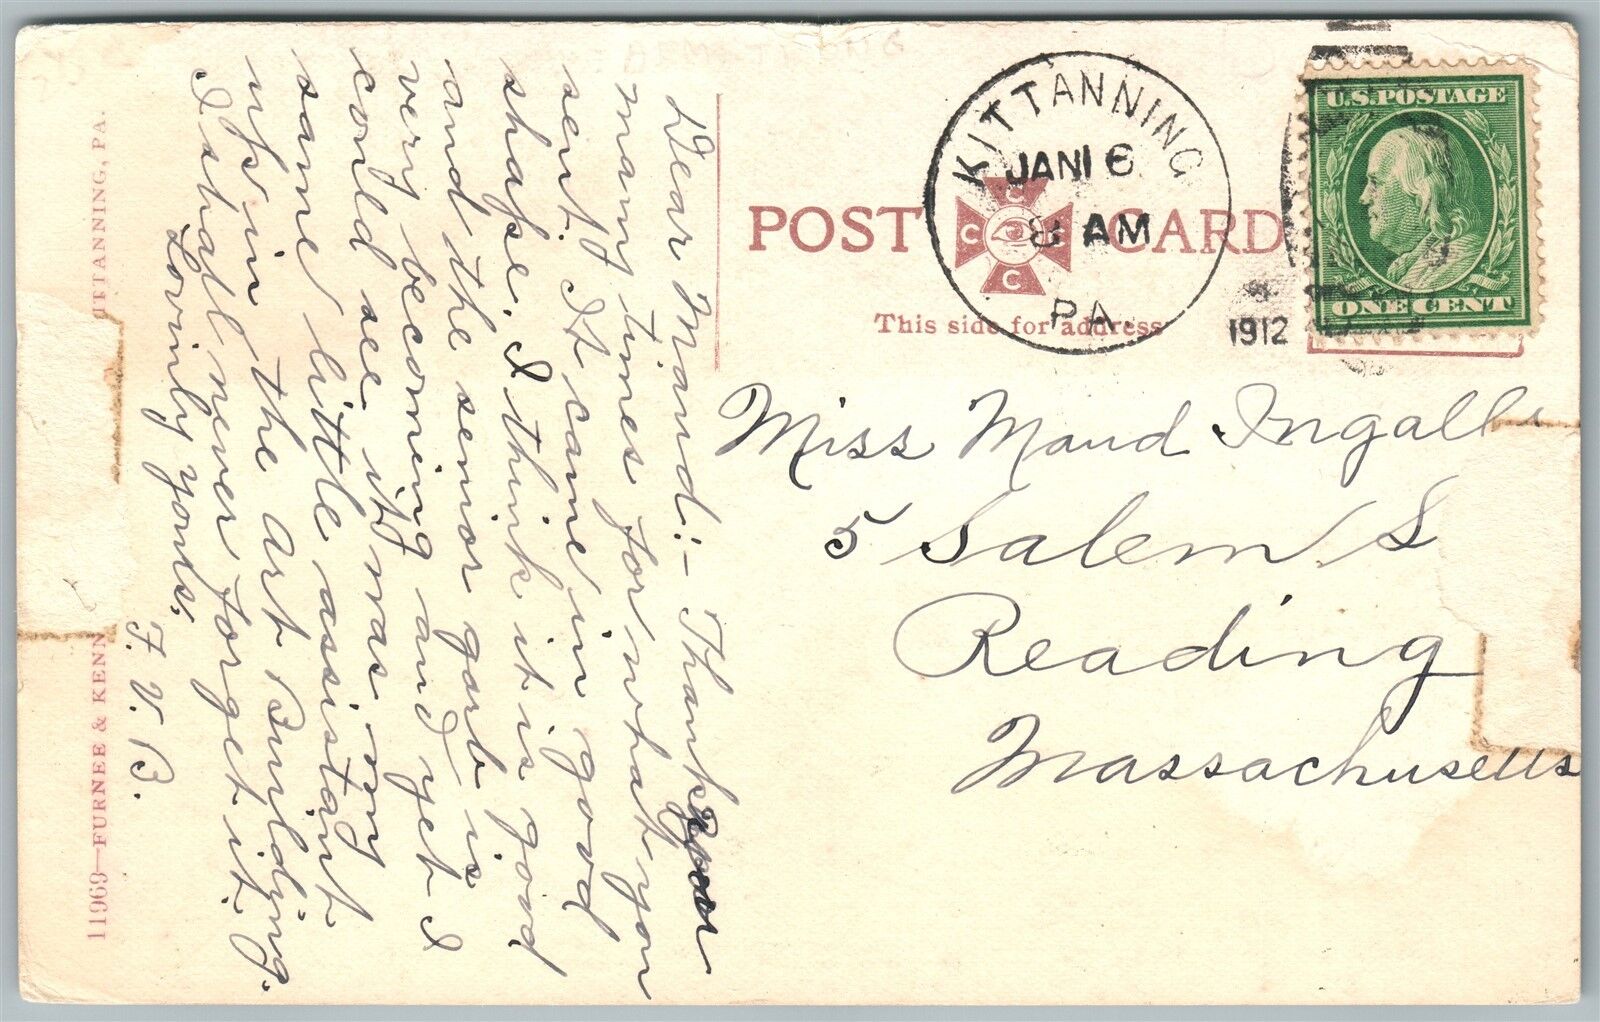 Dear Maud:- Thank you
many times for what you
sent. It came in good
shape. I think it is good
and the senior garb is
very becoming and yet I
could see it was my
same little assistant
up in the Art Building.
I shall never forget it.
Lovingly yours.
F. V. B.
11969—FURNEE & KENN
ITTANNING, PA.
POST CARD
C C C C
This side for address
KITTANNING
JAN 16
8 AM
PA.
1912
U.S. POSTAGE
ONE CENT
Miss Maud Ingalls
5 Salem S
Reading
Massachusetts